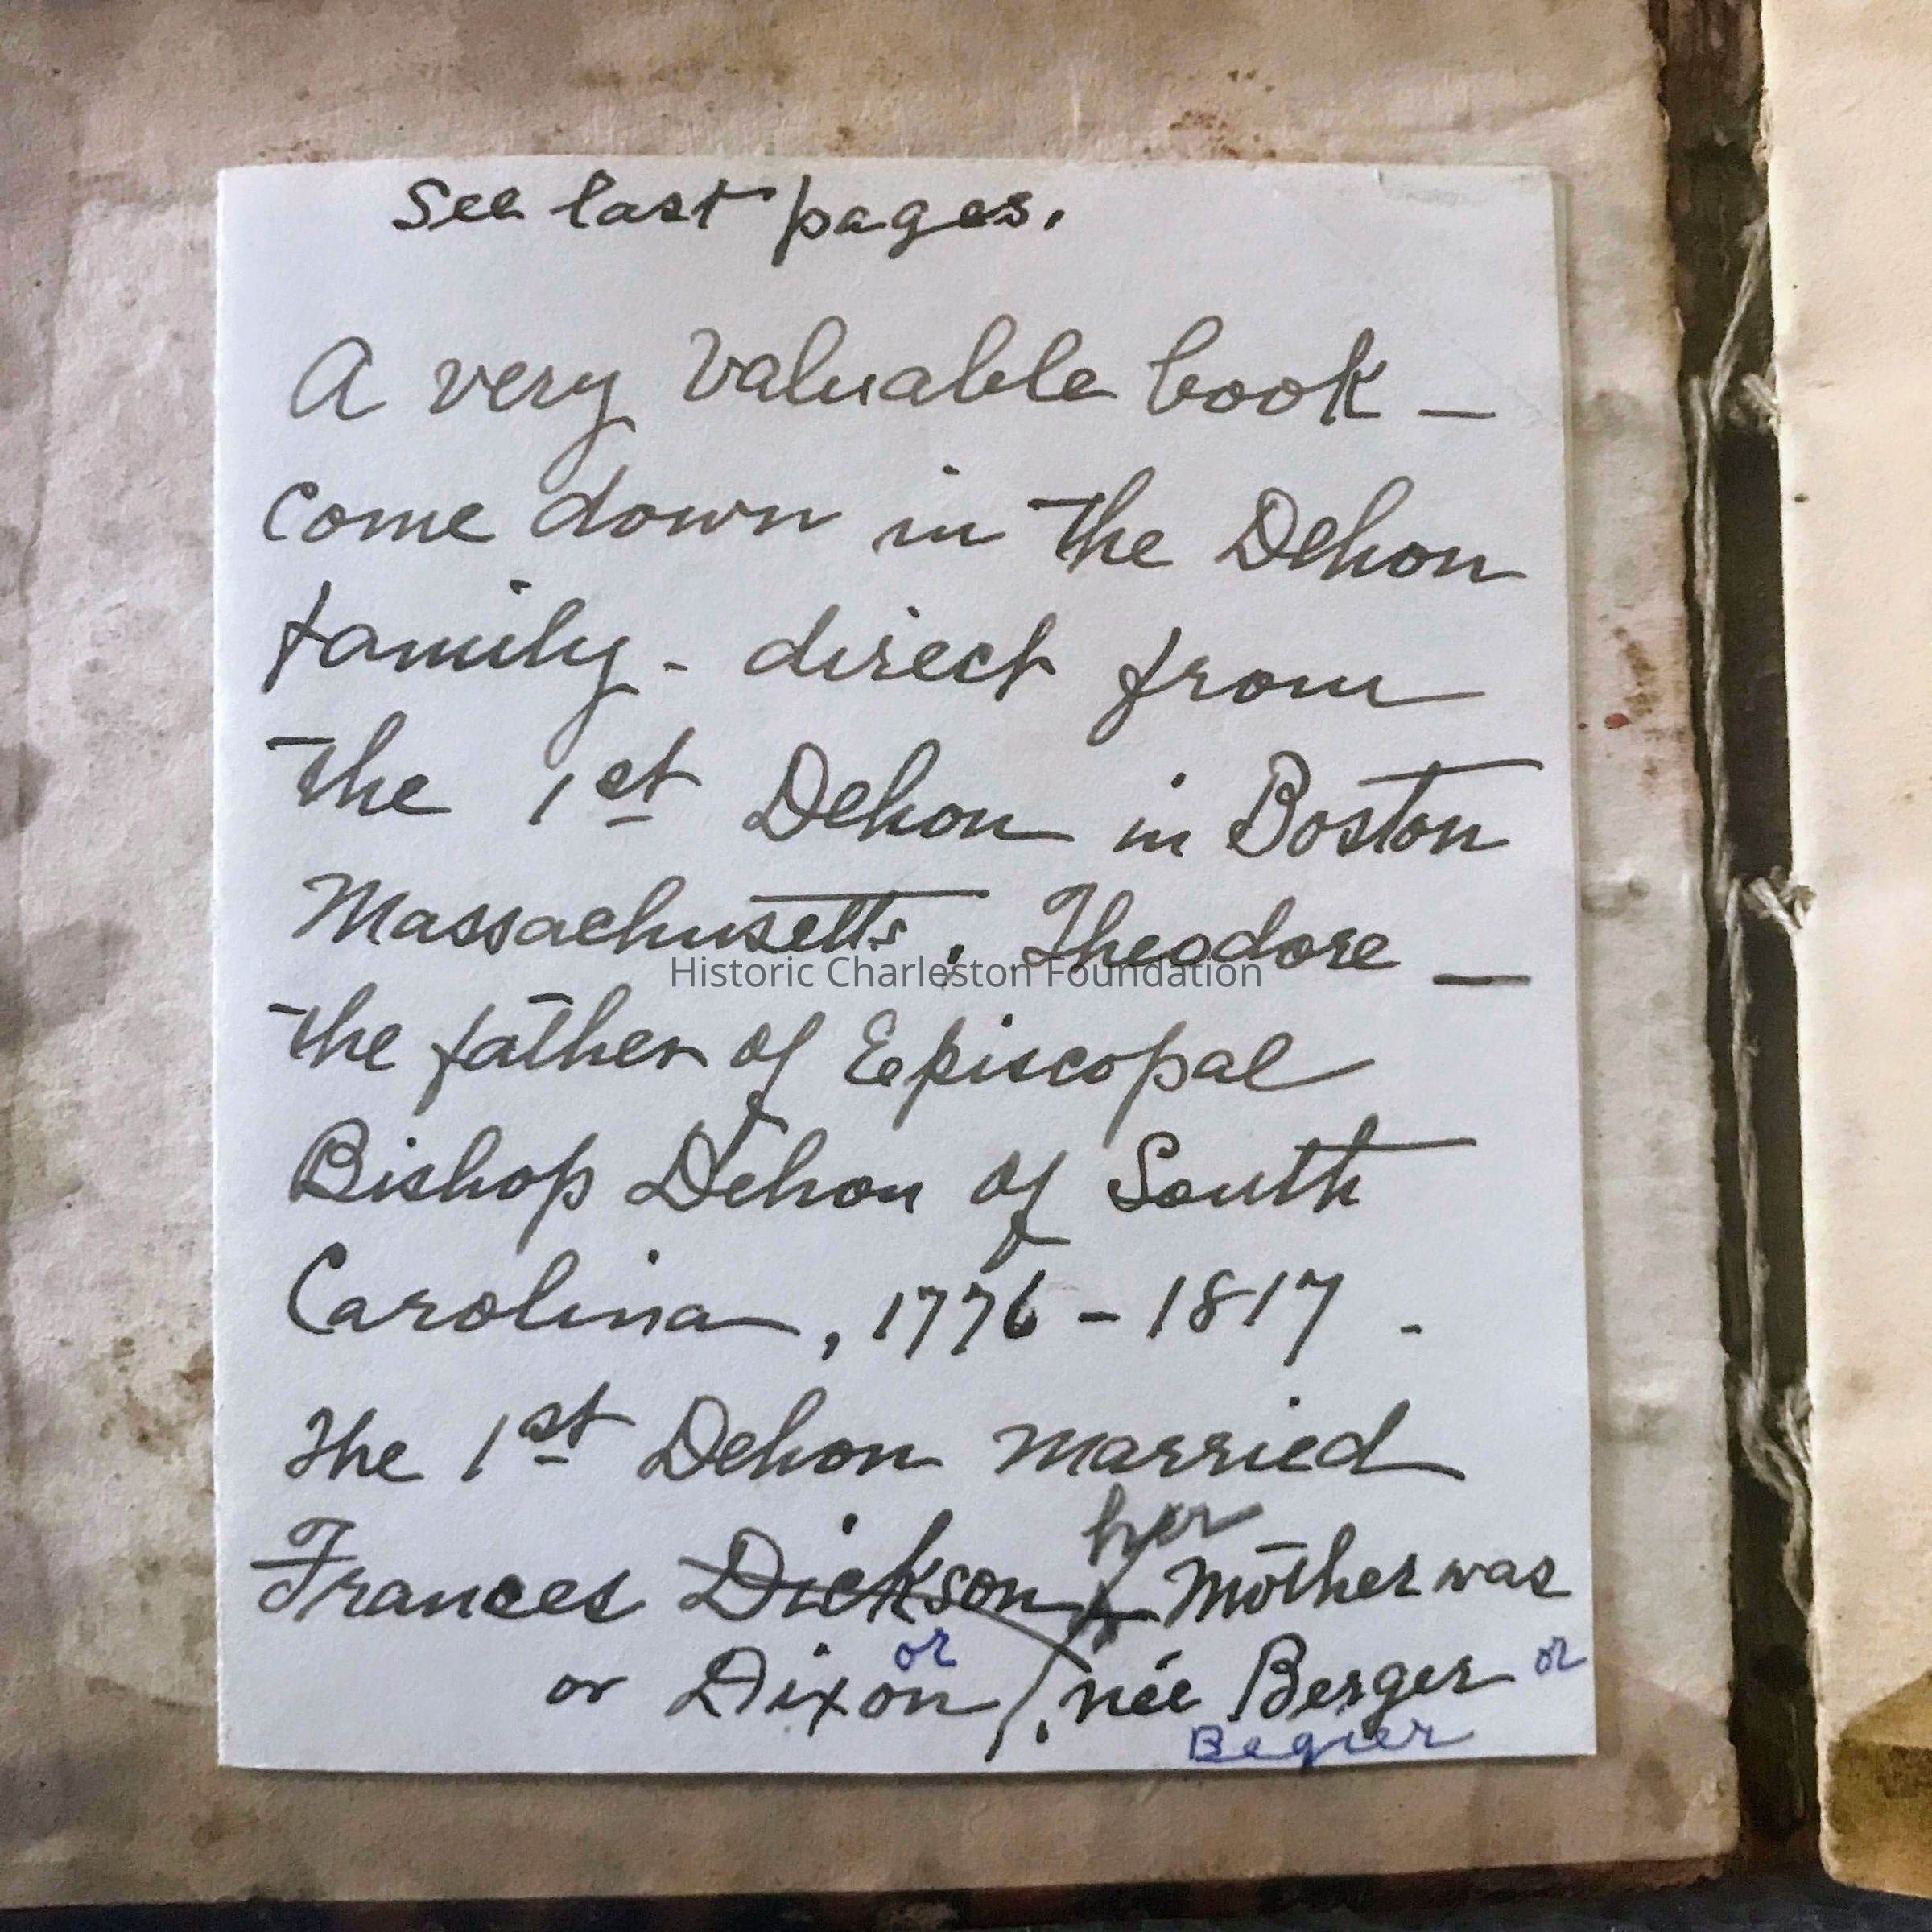 See last pages.
A very valuable book —
come down in the Dehon
family - direct from
the 1st Dehon in Boston
Massachusetts, Theodore —
Historic Charleston Foundation
the father of Episcopal
Bishop Dehon of South
Carolina, 1776 - 1817 -
The 1st Dehon married
her
Frances Dickson Mother was
or
or Dixon, née Berger or
Begier